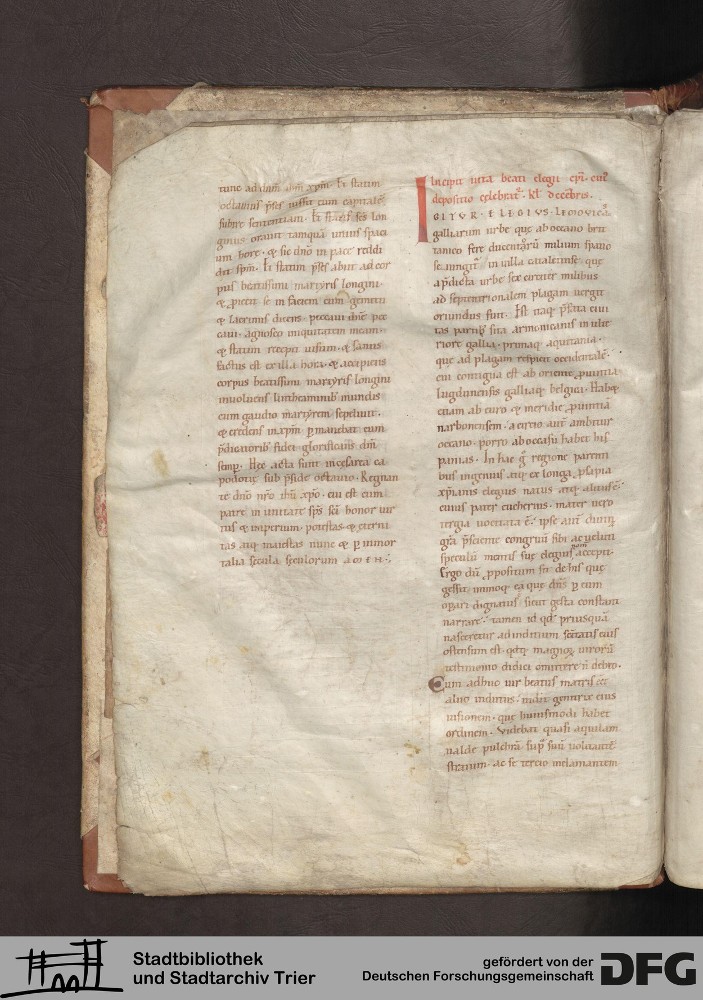 tunc ad dnm ihm xpm. Et statim
octauius pses iussit eum capitalē
subire sententiam. Et scs lon
ginus orauit tamquā unius spaci
um hore. & sic dño in pace reddi
dit spm. Et statim pses abiit ad cor
pus beatissimi martyris longini.
& piecit se in faciem cum gemitu
& lacrimis dicens. peccaui dne pec
caui. agnosco iniquitatem meam.
& statim recepit uisum. & sanus
factus est ex illa hora. & accipiens
corpus beatissimi martyris longini
inuoluens lintheaminib mundis
cum gaudio martyrem sepeliuit.
& credens in xpm pmanebat cum
pdicatorib fidei glorificans dm
semp. Hec acta sunt in cesarea ca
podocie sub pside octauio. Regnan
te dno nro ihu xpo. cui est cum
patre in unitate sps sci honor uir
tus & imperium. potestas & eterni
tas atq maiestas nunc & p inmor
talia secula seculorum AMEN.
Incipit uita beati elegii epi. cui
depositio celebrat. kl decebris.
IGITUR ELEGIUS LEMOVICA
galliarum urbe que ab oceano bri
tanico fere ducentorū milium spatio
se iungit in uilla cataletinse que
a pdicta urbe sex circiter milibus
ad septentrionalem plagam uergit
oriundus fuit. Est itaq pfata ciui
tas partib sita armoricanis in ulte
riore gallia. primaq aquitania.
que ad plagam respicit occidentalē.
cui contigua est ab oriente puintia
lugdunensis galliaq belgica. Habe
etiam ab euro & meridie puintiā
narbonensem. a circio aut ambitur
oceano. porro ab occasu habet his
panias. In hac g regione parenti
bus ingenuis atq ex longa psapia
xpianis elegius natus atq altus ē.
cuius pater eucherius. mater uero
terrigia uocitata ē. ipse aut diuinq
gra psciente congruū sibi ac ueluti
speculū mentis sue elegius nom accepit.
Ergo dū ppositum sit de his que
gessit. immoq ea que dns p eum
opari dignatus sicut gesta constant
narrare. tamen id qd priusquā
nasceretur ad inditium scitatis eius
ostensum est. qdq magnor uirorū
testimonio didici omittere n debeo.
Cum adhuc uir beatus matris cet
aluo inditus. uidit genitrix eius
uisionem. que huiusmodi habet
ordinem. Videbat quasi aquilam
ualde pulchrā sup suū uolitantē
stratum. ac se tercio inclamantem
Stadtbibliothek
und Stadtarchiv Trier
gefördert von der
Deutschen Forschungsgemeinschaft
DFG